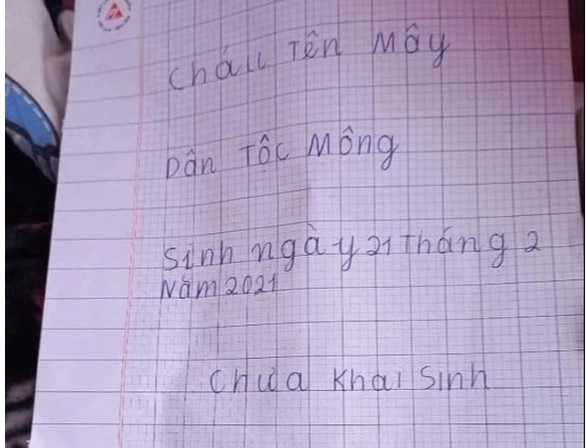 Cháu Tên Mây
Dân Tộc Mông
Sinh ngày 21 Tháng 2
Năm 2021
Chưa Khai Sinh